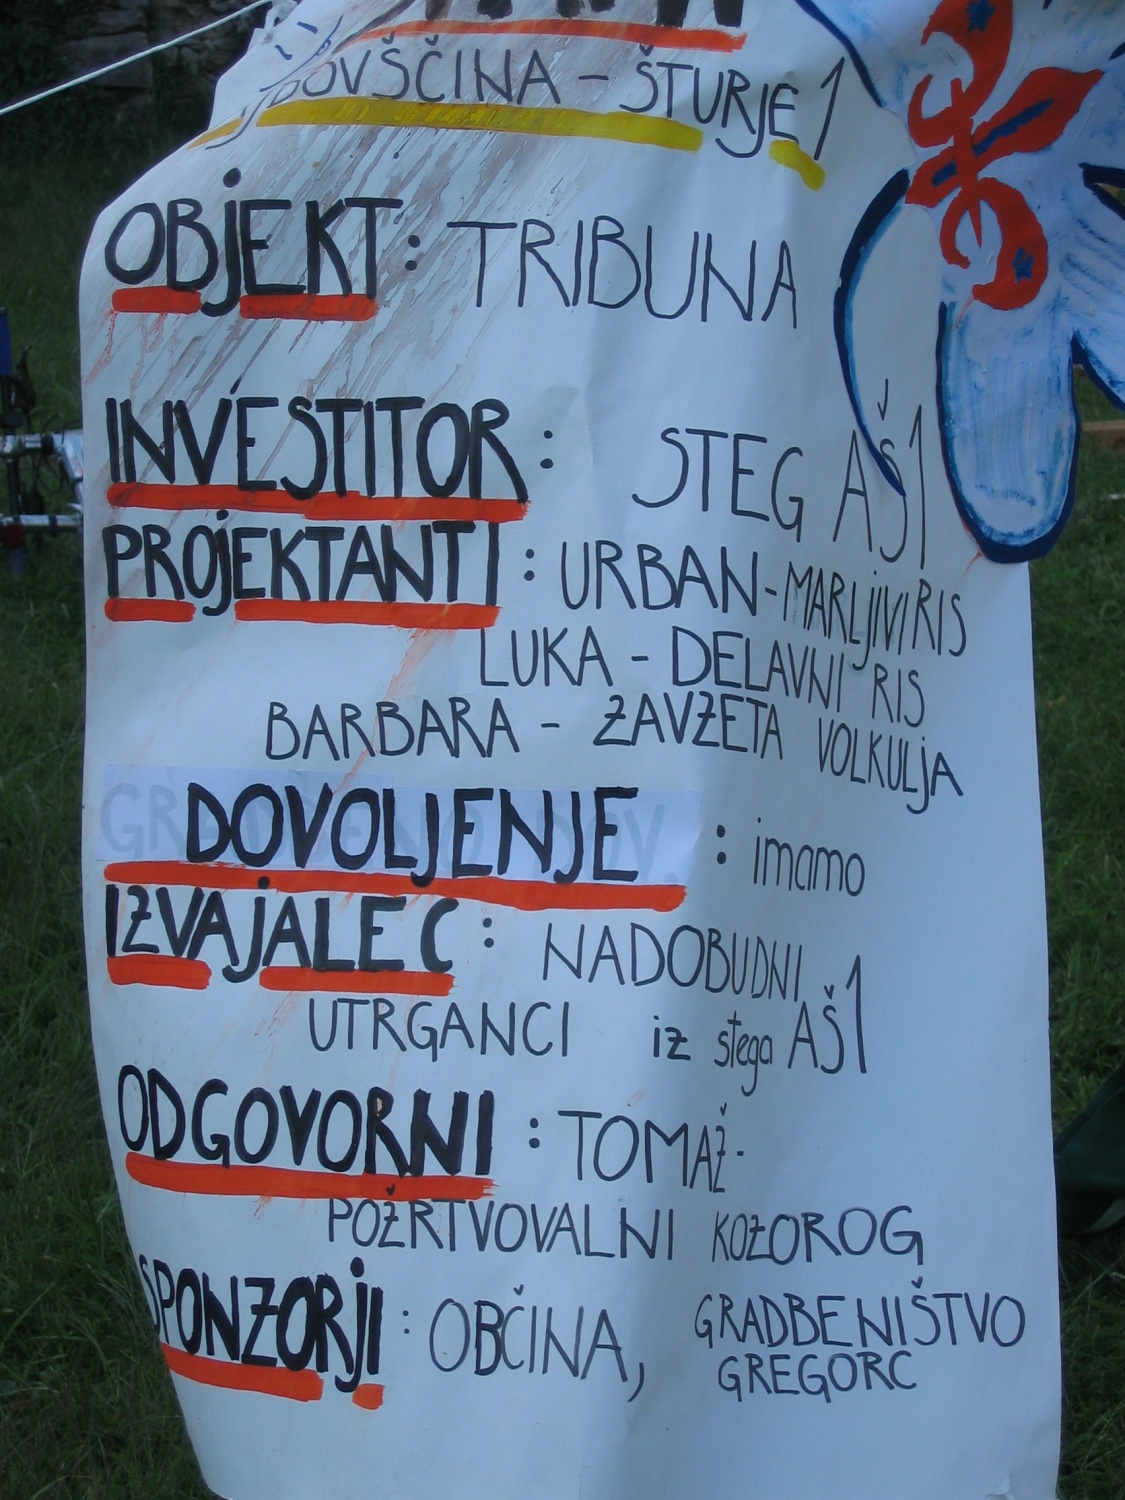 DOVŠČINA - ŠTURJE 1
OBJEKT : TRIBUNA
INVESTITOR : STEG AŠ1
PROJEKTANTI : URBAN-MARLJIVI RIS
LUKA - DELAVNI RIS
BARBARA - ZAVZETA VOLKULJA
DOVOLJENJE : imamo
IZVAJALEC : NADOBUDNI
UTRGANCI iz stega AŠ1
ODGOVORNI : TOMAŽ-
POŽRTVOVALNI KOZOROG
SPONZORJI : OBČINA, GRADBENIŠTVO
GREGORC